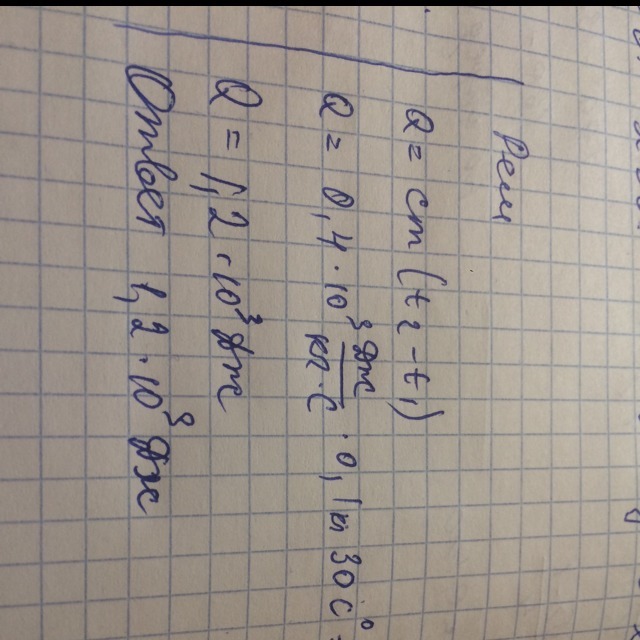 Реш
Q = cm (t2 - t1)
Q = 0,4 · 10³ дж/кг·С · 0,1 кг 30С° =
Q = 1,2 · 10³ дж
Ответ 1,2 · 10³ дж